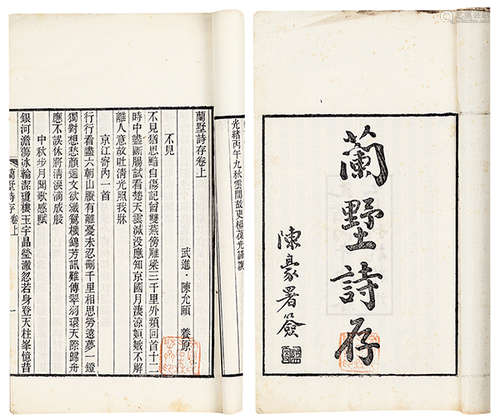 蘭墅詩存
陳豪署簽
光緒丙午九秋雲間故吏楊葆光謹識
蘭墅詩存卷上
武進 陳允頤 養原
不見
不見猶思黯自傷記曾雙燕傍雕梁三千里外頻回首十二
時中盡斷腸試看楚天雲滅沒應知京國月淒涼姮娥不解
離人意故吐清光照我牀
京江寄內一首
行行看盡六朝山服有離憂未忍刪千里相思勞遠夢一燈
獨對想愁顏文欲織鴛機錦芳訊難傳翠羽環天際歸舟
應不誤休將清淚滴成殷
中秋步月聞歌感賦
銀河澹蕩冰輪潔瓊樓玉宇晶瑩澈忽若身登天柱峯憶昔
蘭墅詩存卷上
一